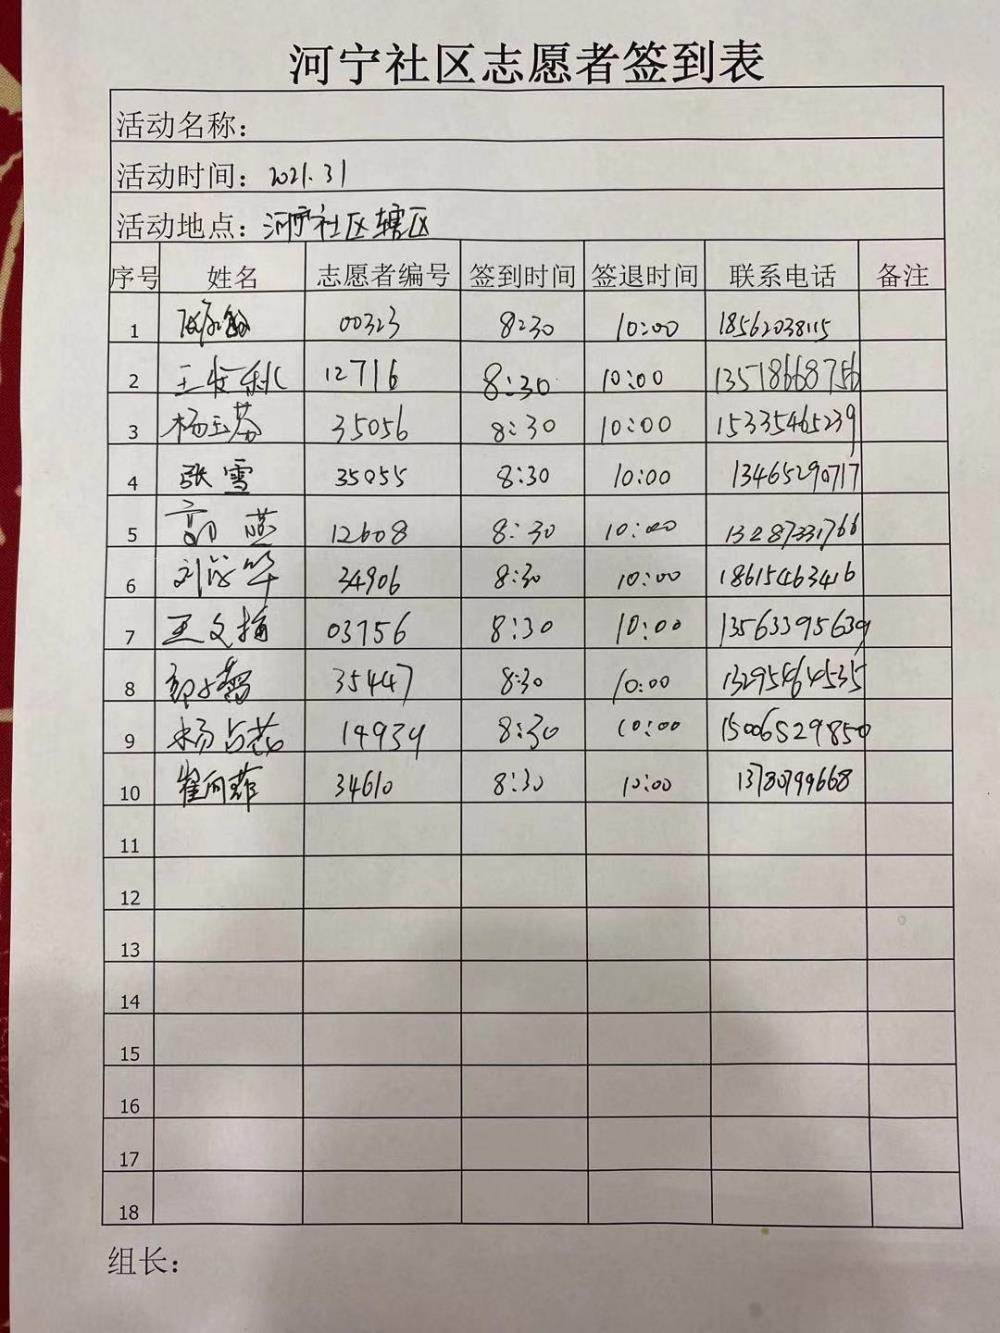 河宁社区志愿者签到表
活动名称：
活动时间：2021.31
活动地点：河宁社区辖区
序号 姓名 志愿者编号 签到时间 签退时间 联系电话 备注
1 00323 8:30 10:00 18562038115
2 王 秋 12716 8:30 10:00 13518668756
3 杨玉芬 35056 8:30 10:00 15335465239
4 张雪 35055 8:30 10:00 13465290717
5 郭燕 12608 8:30 10:00 13287331766
6 刘 华 34906 8:30 10:00 18615463416
7 王文梅 03756 8:30 10:00 13563395639
8 35447 8:30 10:00 13295464535
9 杨占 14934 8:30 10:00 15006529850
10 崔向 34610 8:30 10:00 13780799668
11
12
13
14
15
16
17
18
组长：